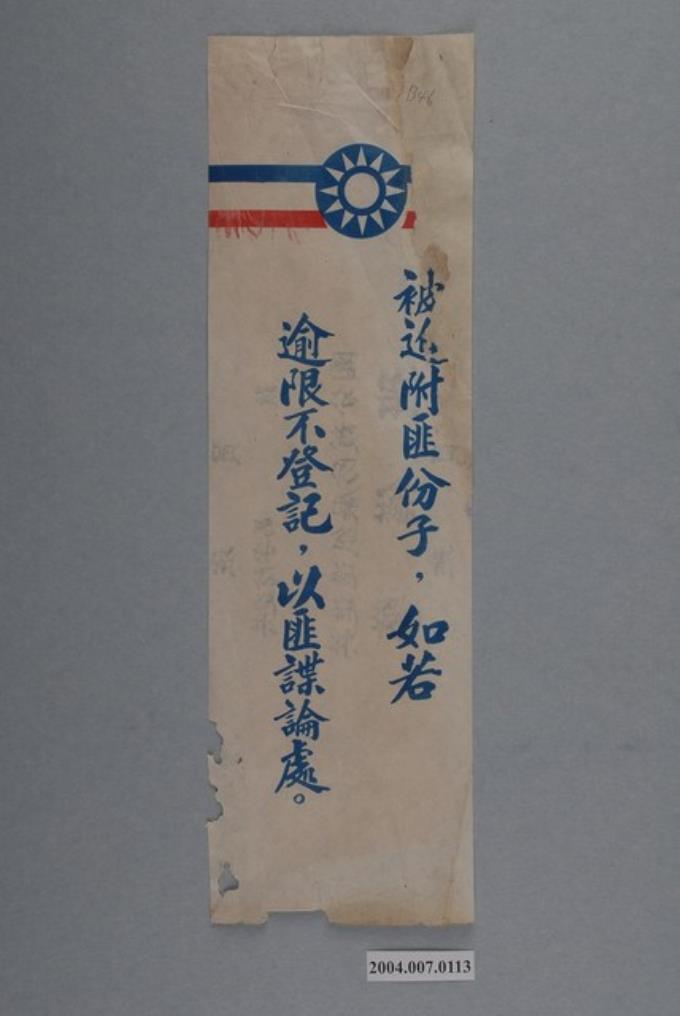 B46
被迫附匪份子，如若
逾限不登記，以匪諜論處。
2004.007.0113